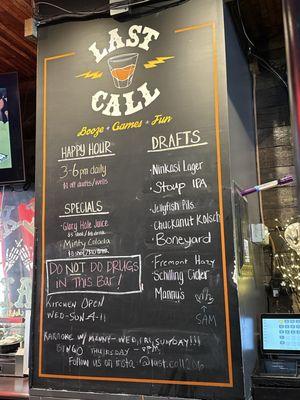 LAST
CALL
Booze • Games • Fun
HAPPY HOUR
3-6pm daily
$1 off drafts/wells
SPECIALS
Glory Hole Juice!
Minty Colada
DO NOT DO DRUGS
IN this Bar!
KITCHEN OPEN
WED-SUN 4-11
DRAFTS
Ninkasi Lager
Stoup IPA
Jellyfish Pils
Chuckanut Kolsch
Boneyard
Fremont Hazy
Schilling Cider
Mannys
SAM
KARAOKE W/ MANNY-WED, FRI, SUNDAY!!!
BINGO THURSDAY - 8PM
Follow us on insta